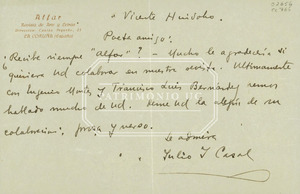 Alfar
Revista de Arte y Letras
LA CORUÑA (España)
Vicente Huidobro.
Poeta amigo:
Recibe siempre "Alfar"? - Mucho le agradeceria si
quisiera Ud colaborar en nuestra revista. Ultimamente
con Eugenio Montes y Francisco Luis Bernárdez hemos
hablado mucho de Ud. Deme Ud la alegria de su
colaboracion, prosa y verso.
Le admira
Julio J Casal
PATRIMONIO UC